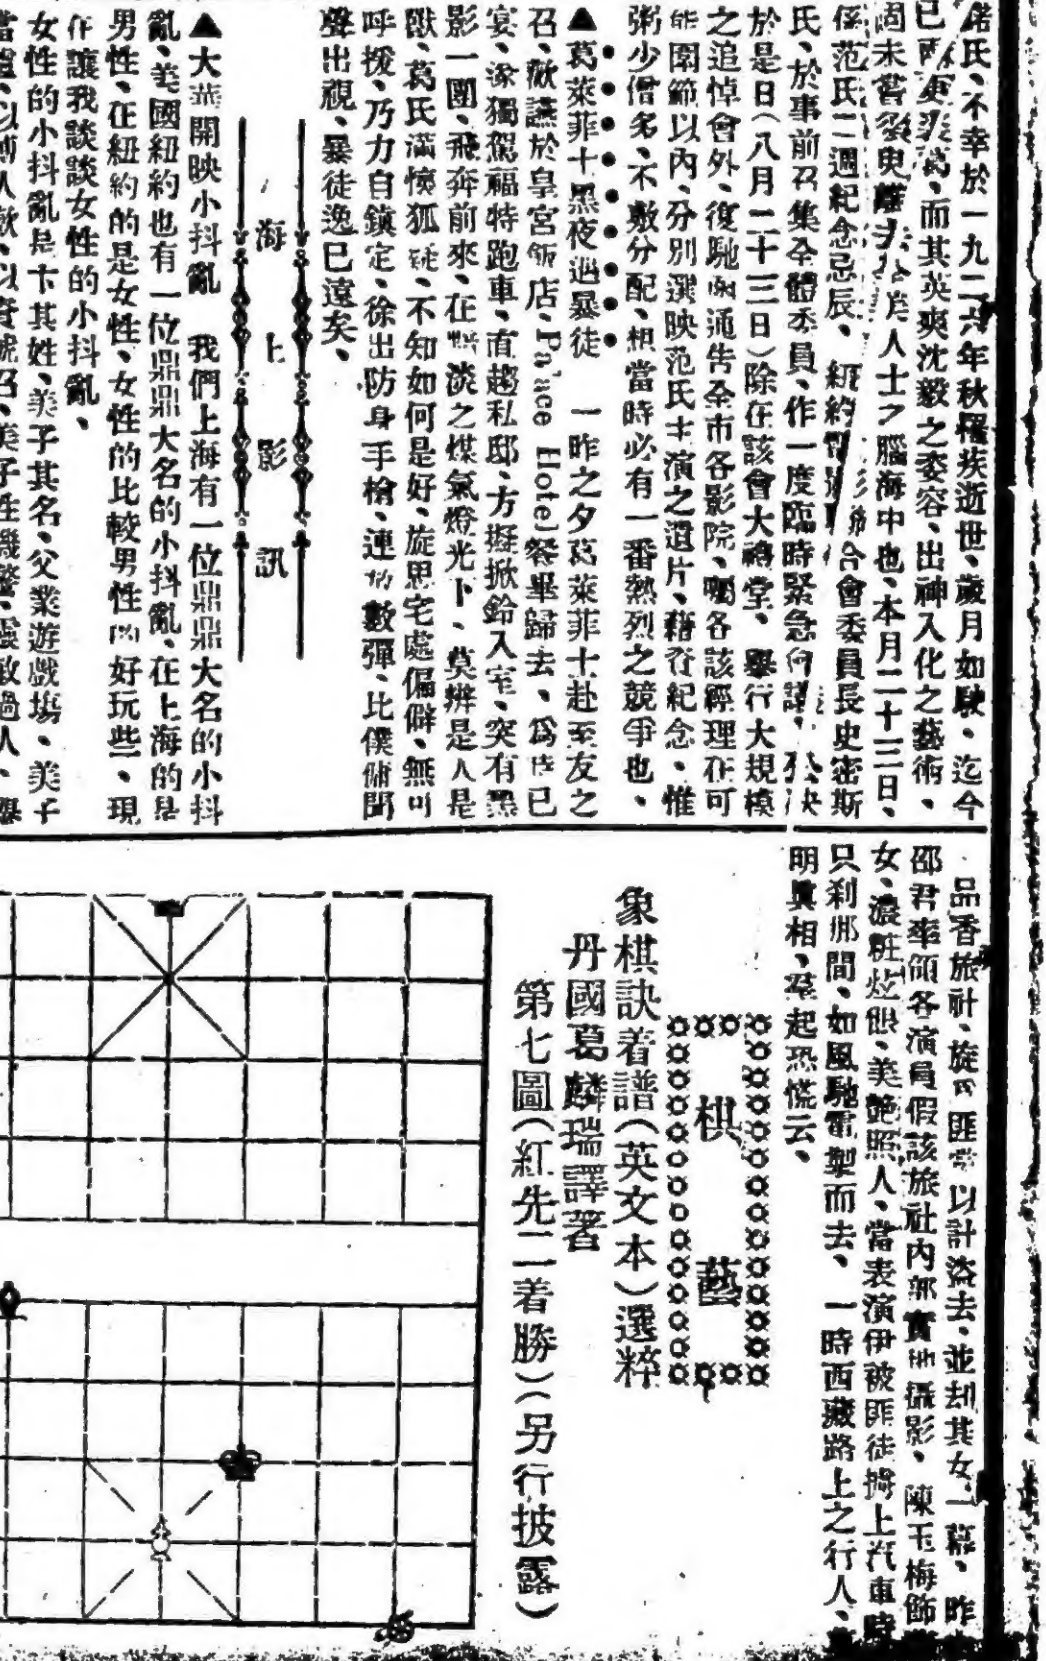 諾氏、不幸於一九二六年秋罹疾逝世、歲月如駛、迄今
已兩更裘葛、而其英爽沈毅之姿容、出神入化之藝術、
固未嘗須臾離去人士之腦海中也、本月二十三日、
係范氏二週紀念忌辰、紐約合會委員長史密斯
氏、於事前召集全體委員、作一度臨時緊急會議、決
於是日(八月二十三日)除在該會大禮堂、舉行大規模
之追悼會外、復馳函通告全市各影院、囑各該經理在可
能圍範以內、分別選映范氏主演之遺片、藉資紀念、惟
粥少僧多、不敷分配、想當時必有一番熱烈之競爭也、
▲葛萊菲士黑夜遇暴徒　一昨之夕葛萊菲士赴至友之
召、歡讌於皇宮飯店、Palace Hotel餐畢歸去、爲時已
宴、遂獨駕福特跑車、直趨私邸、方擬掀鈴入室、突有黑
影一團、飛奔前來、在黯淡之煤氣燈光下、莫辨是人是
獸、葛氏滿懷狐疑、不知如何是好、旋思宅處偏僻、無可
呼援、乃力自鎮定、徐出防身手槍、連放數彈、比僕傭聞
聲出視、暴徒逸已遠矣、
海上影訊
▲大華開映小抖亂　我們上海有一位鼎鼎大名的小抖
亂、美國紐約也有一位鼎鼎大名的小抖亂、在上海的是
男性、在紐約的是女性、女性的比較男性的好玩些、現
在讓我談談女性的小抖亂、
女性的小抖亂是卞其姓、美子其名、父業遊戲塲、美子
品香旅社、旋爲匪黨以計盜去、並刦其女一幕、昨
邵君率領各演員假該旅社內部實地攝影、陳玉梅飾
女、濃粧炫眼、美艷照人、當表演伊被匪徒擄上汽車時
只剎那間、如風馳電掣而去、一時西藏路上之行人、
明眞相、羣起恐慌云、
棋藝
象棋訣着譜(英文本)選粹
丹國葛麟瑞譯著
第七圖(紅先二着勝)(另行披露)